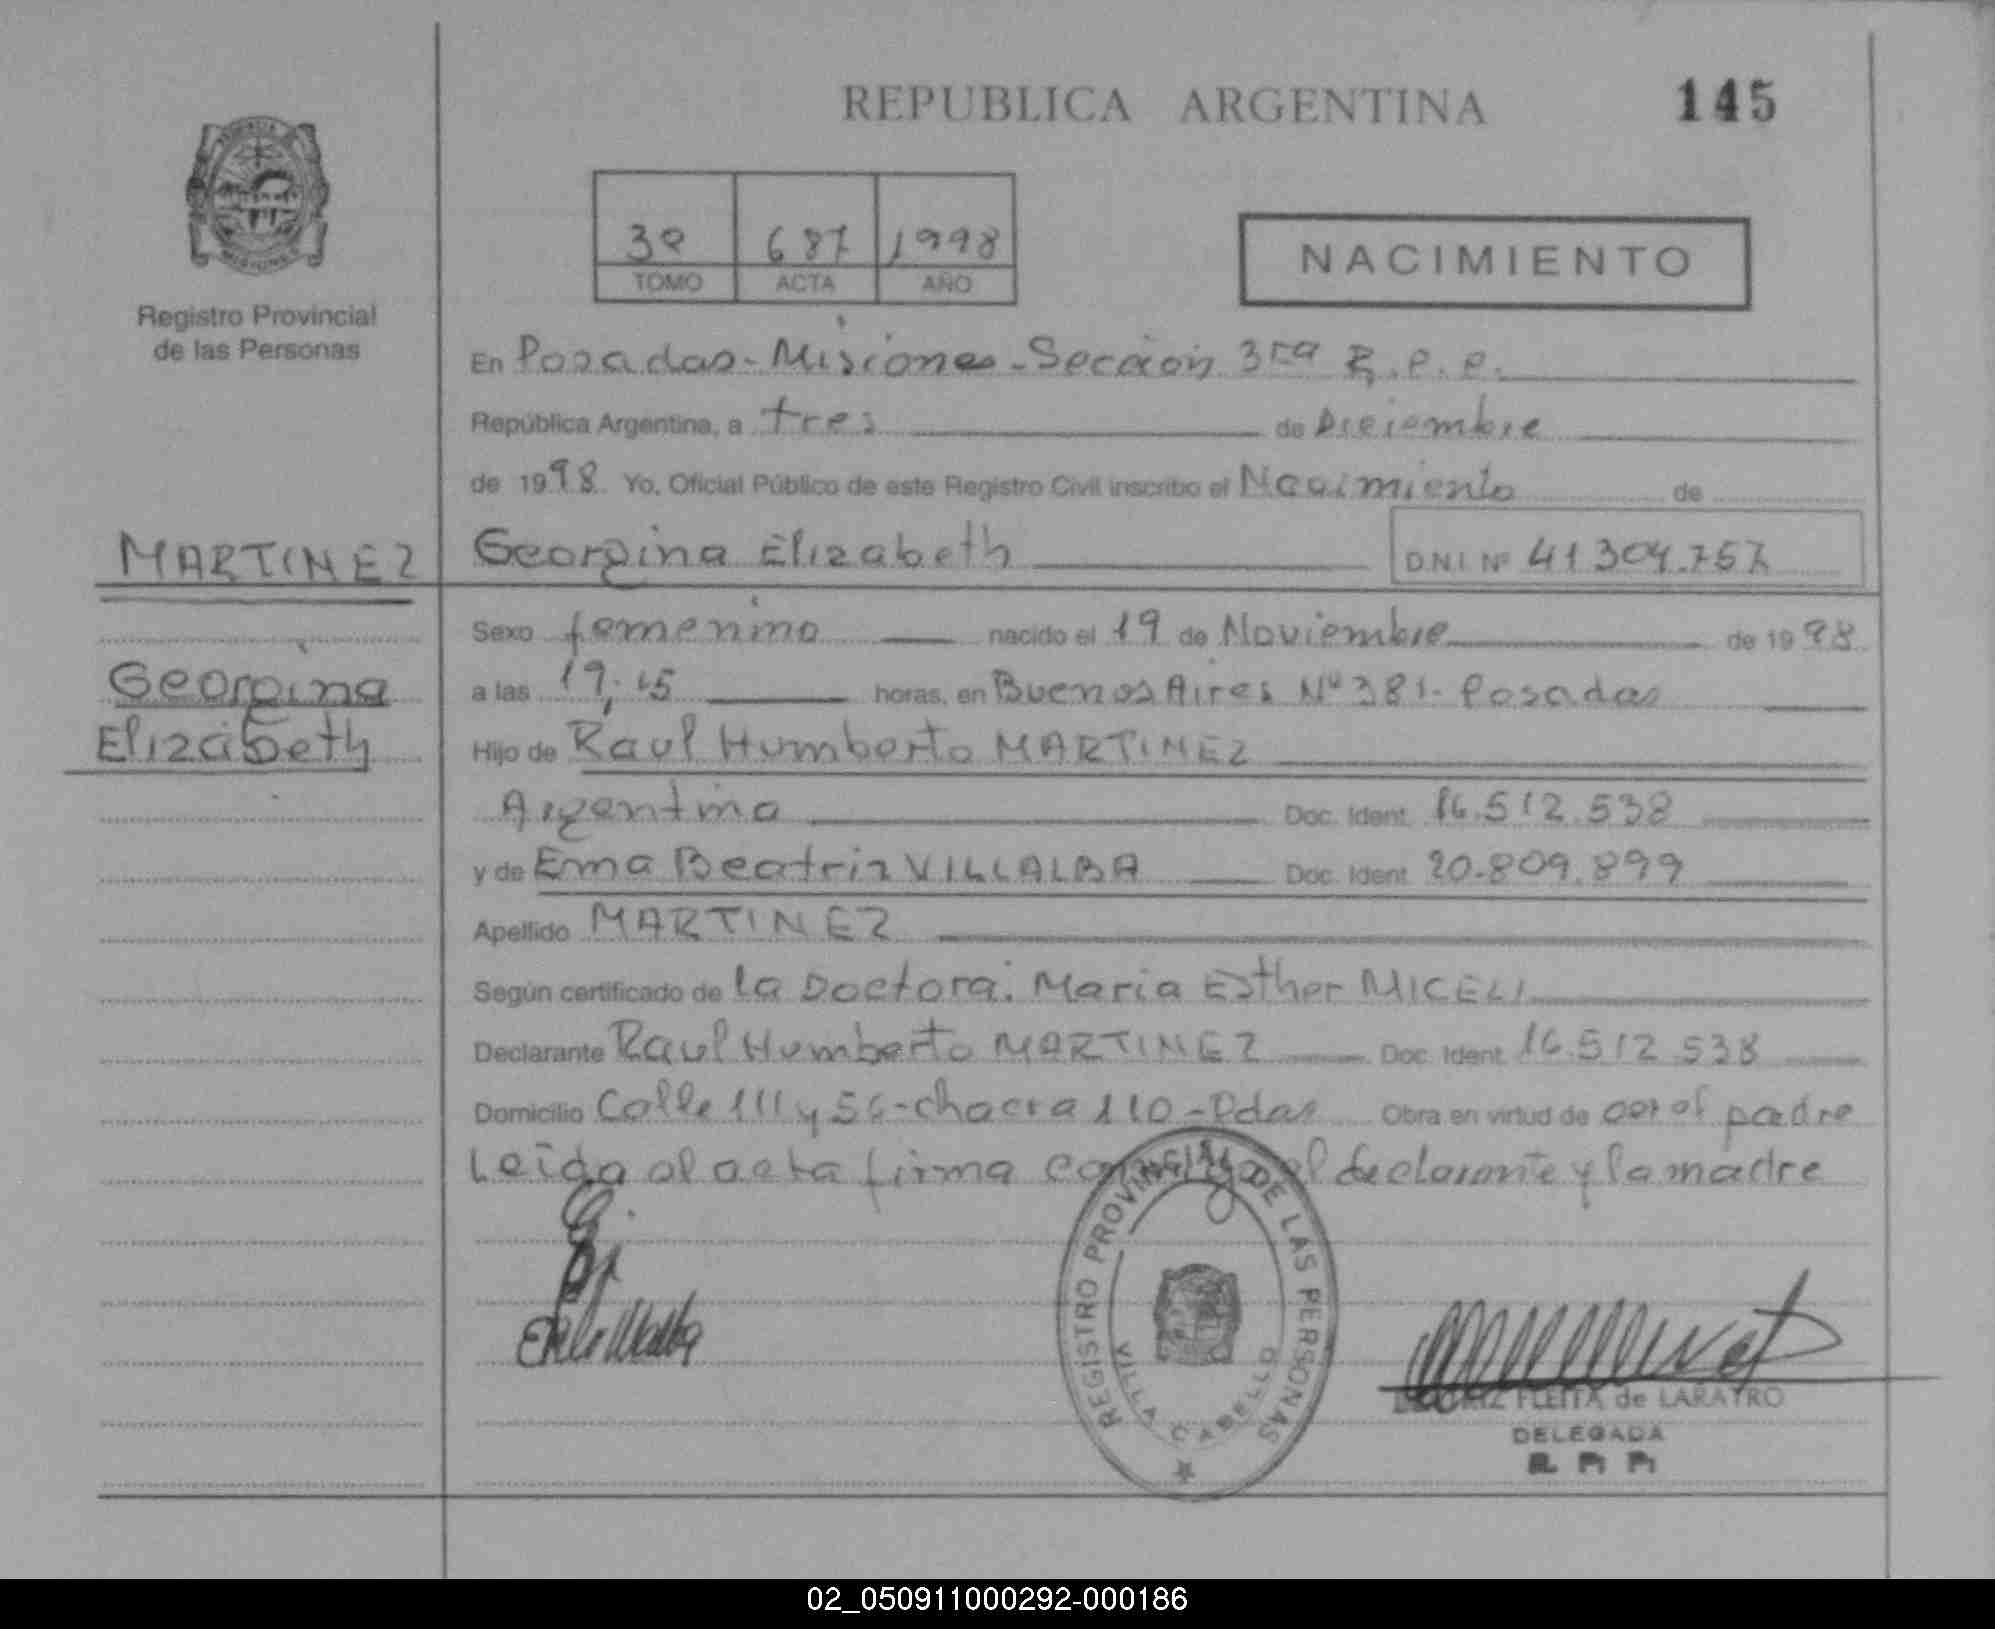 REPUBLICA ARGENTINA
145
3º 687 1998
TOMO ACTA AÑO
NACIMIENTO
Registro Provincial
de las Personas
En Posadas-Misiones-Sección 3ra R.P.P.
República Argentina, a tres de Diciembre
de 1998 Yo, Oficial Público de este Registro Civil inscribo el Nacimiento de
MARTINEZ
Georgina Elizabeth DNI Nº 41.304.757
Sexo femenino nacido el 19 de Noviembre de 1998
Georgina
Elizabeth
a las 19,15 horas, en Buenos Aires Nº 381- Posadas
Hijo de Raul Humberto MARTINEZ
Argentina Doc. Ident. 16.512.538
y de Ema Beatriz VILLALBA Doc. Ident. 20.809.899
Apellido MARTINEZ
Según certificado de la Doctora: Maria Esther MICELI
Declarante Raul Humberto MARTINEZ Doc. Ident. 16.512.538
Domicilio Calle 111 y 56-chacra 110-Pdas Obra en virtud de ser el padre
Leída el acta firma el declarante y la madre
REGISTRO PROVINCIAL DE LAS PERSONAS
VILLA CABELLO
FLEITA de LARAYRO
DELEGADA
R. P. P.
02_050911000292-000186